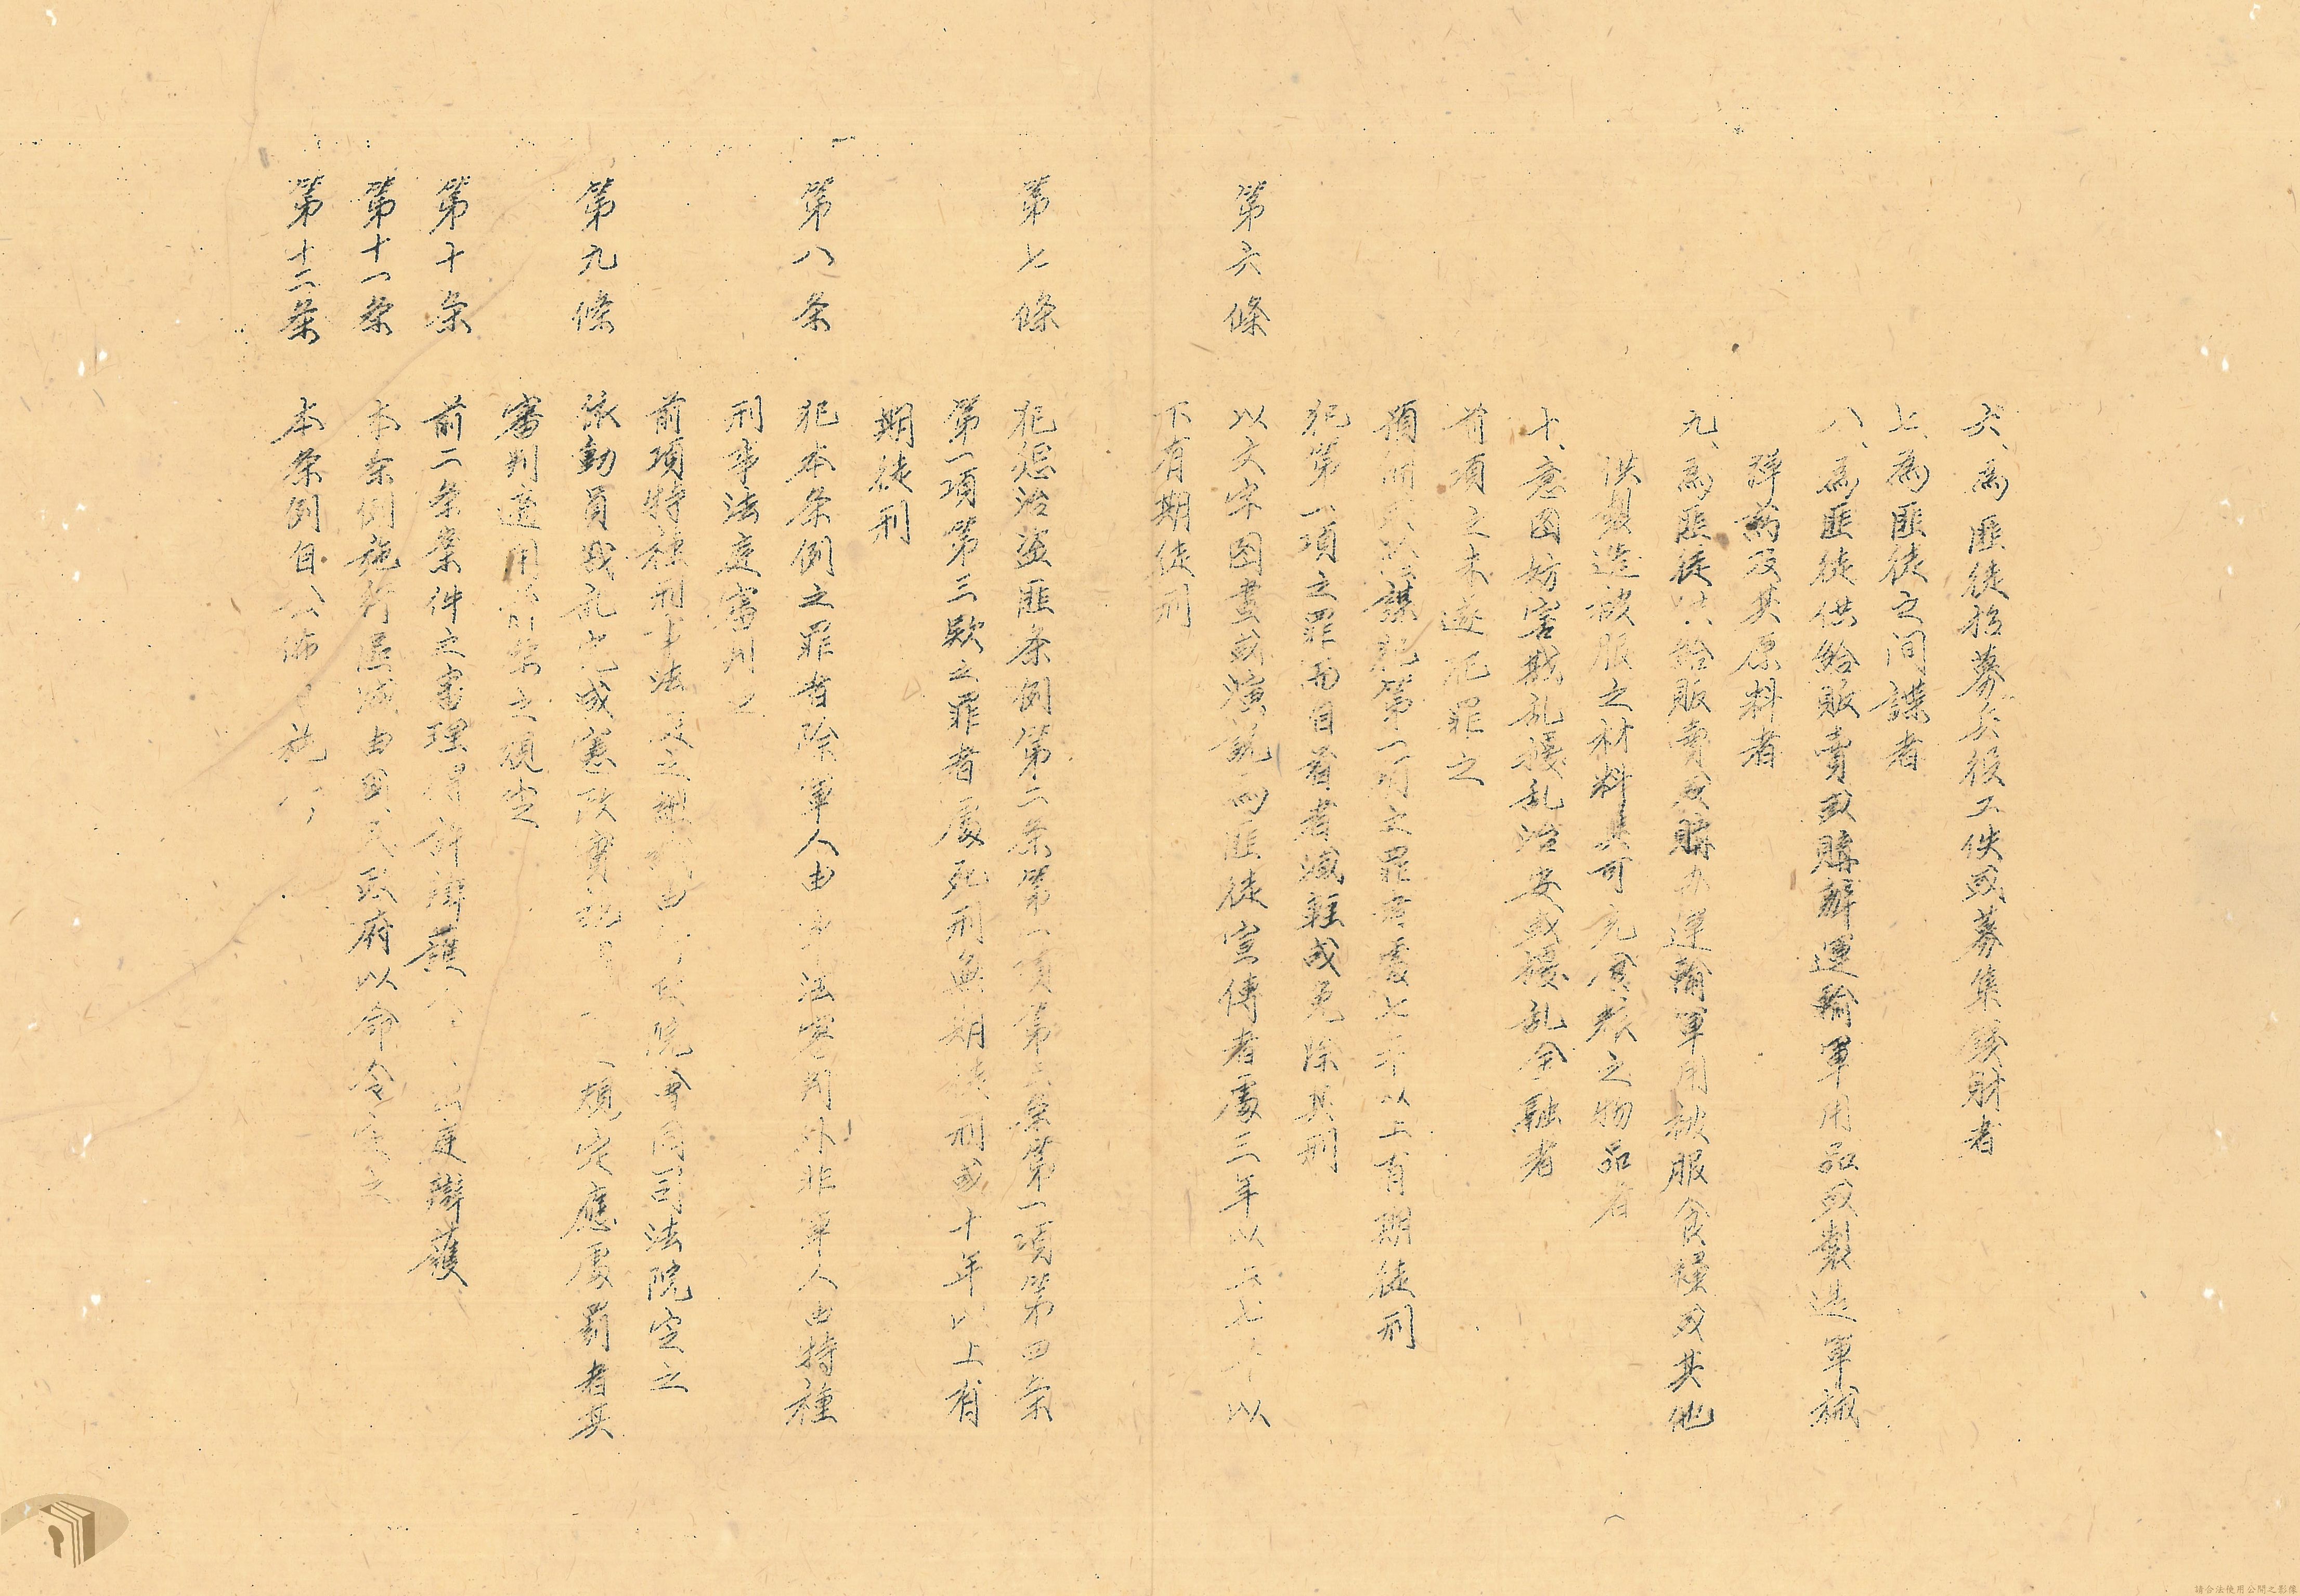 六、為匪徒招募兵役工伕或募集錢財者
七、為匪徒之间諜者
八、為匪徒供給販賣或購辦運輸軍用品或製造軍械
弹药及其原料者
九、為匪徒供給販賣或購办運輸軍用被服食糧或其他
供製造被服之材料與可充食粮之物品者
十、意图妨害戡乱擾乱治安或擾乱金融者
前項之未遂犯罪之
預備或陰謀犯第一項之罪者處七年以上有期徒刑
犯第一項之罪而自首者減輕或免除其刑
第六條 以文字图畫或演說為匪徒宣傳者處三年以上七年以
下有期徒刑
第七條 犯惩治盜匪条例第二条第一項第三条第一項第四条
第一項第三欵之罪者處死刑無期徒刑或十年以上有
期徒刑
第八条 犯本条例之罪者除軍人由軍法審判外非軍人由特種
刑事法庭審判之
前項特種刑事法庭之組織由行政院會同司法院定之
第九條 依動員戡乱完成憲政實施 規定應處罰者其
審判適用前条之規定
第十条 前二条案件之審理得許辯護人出庭辯護
第十一条 本条例施行區域由國民政府以命令定之
第十二条 本条例自公佈日施行